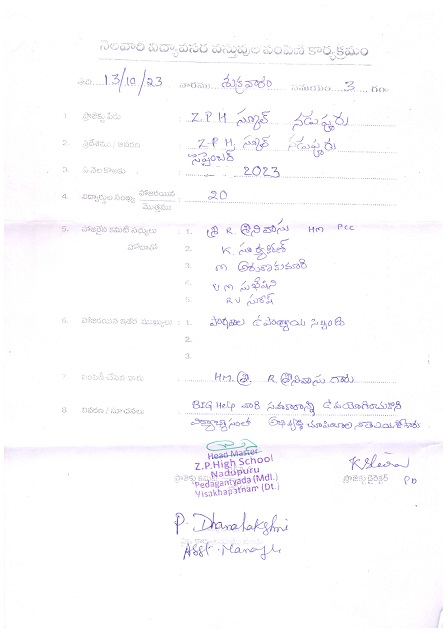 నెలవారి విద్యావసర వస్తువుల పంపిణి కార్యక్రమం
తేది 13/10/23 వారము శుక్రవారం సమయం 3 గం
1. ప్రాజెక్టు పేరు : Z.P.H స్కూల్ నడుపూరు
2. ప్రదేశము / వివరం : Z.P.H. స్కూల్ నడుపూరు
3. ఏ నెల కొరకు : సెప్టెంబర్ - 2023
4. విద్యార్థుల సంఖ్య హాజరయిన / మొత్తము : 20
5. హాజరైన కమిటీ సభ్యులు : 1. శ్రీ R. శ్రీనివాసు HM PCC
హోదాతో 2. K. సూర్యకళ
3. M అరుణ కుమారి
4. V.M సుభేషిని
5. R.V సురేష్
6. హాజరయిన ఇతర ముఖ్యులు : 1. పాఠశాల ఉపాధ్యాయ సిబ్బంది
2.
3.
7. పంపిణీ చేసిన వారు : HM. శ్రీ. R. శ్రీనివాసు గారు
8. వివరణ / సూచనలు : BIG Help వారి సహకారాన్ని ఉపయోగించుకుని
విద్యార్థులంతా అభివృద్ధి చూపించాలని
Head Master
Z.P.High School
Nadupuru
Pedagantyada (Mdl.)
Visakhapatnam (Dt.)
ప్రాజెక్టు డైరెక్టర్ PD
P. Dhanalakshmi
Asst. Manager